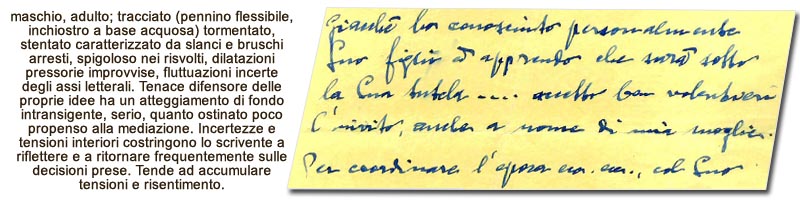 maschio, adulto; tracciato (pennino flessibile,
inchiostro a base acquosa) tormentato,
stentato caratterizzato da slanci e bruschi
arresti, spigoloso nei risvolti, dilatazioni
pressorie improvvise, fluttuazioni incerte
degli assi letterali. Tenace difensore delle
proprie idee ha un atteggiamento di fondo
intransigente, serio, quanto ostinato poco
propenso alla mediazione. Incertezze e
tensioni interiori costringono lo scrivente a
riflettere e a ritornare frequentemente sulle
decisioni prese. Tende ad accumulare
tensioni e risentimento.
ho conosciuto personalmente
Suo figlio ed apprendo che sarà sotto
la Sua tutela .... accetto ben volentieri
l'invito, anche a nome di mia moglie.
Per coordinare l'epoca ecc. ecc., col Suo